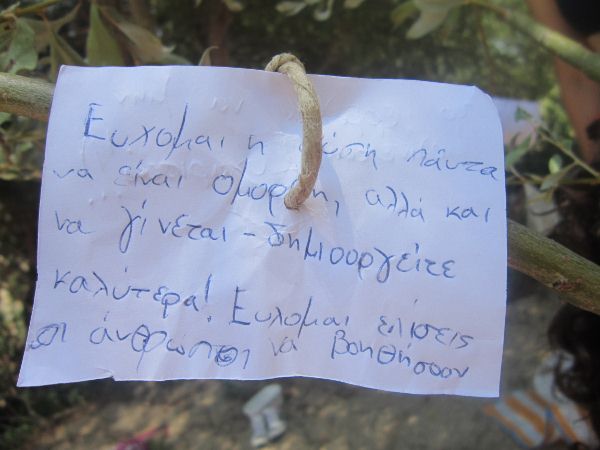 Ευχομαι η φύση πάντα
να είναι ομορφη, αλλά και
να γίνεται - δημιουργείτε
καλύτερα! Ευχομαι επίσεις
οι άνθρωποι να βοηθήσουν